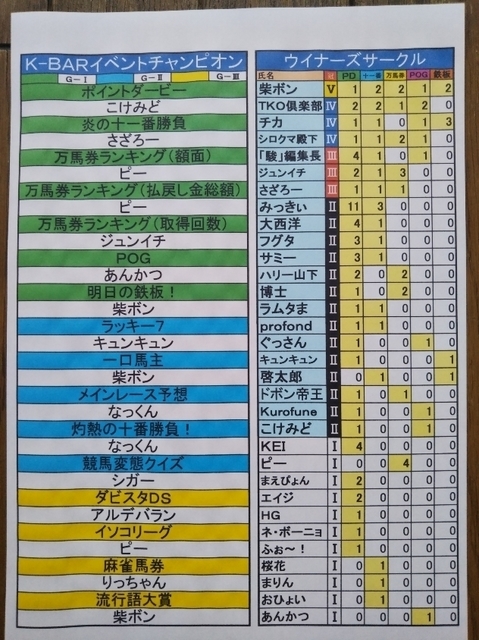 K-BARイベントチャンピオン
G-Ⅰ G-Ⅱ G-Ⅲ
ポイントダービー
こけみど
炎の十一番勝負
さざろー
万馬券ランキング(額面)
ピー
万馬券ランキング(払戻し金総額)
ピー
万馬券ランキング(取得回数)
ジュンイチ
POG
あんかつ
明日の鉄板！
柴ボン
ラッキー7
キュンキュン
一口馬主
柴ボン
メインレース予想
なっくん
灼熱の十番勝負！
なっくん
競馬変態クイズ
シガー
ダビスタDS
アルデバラン
イソコリーグ
ピー
麻雀馬券
りっちゃん
流行語大賞
柴ボン
ウイナーズサークル
氏名 PD 十一番 万馬券 POG 鉄板
柴ボン Ⅴ 1 2 2 1 2
TKO倶楽部 Ⅳ 2 2 1 2 0
チカ Ⅳ 1 1 0 1 3
シロクマ殿下 Ⅳ 1 1 2 1 0
「駿」編集長 Ⅲ 4 1 0 1 0
ジュンイチ Ⅲ 2 1 3 0 0
さざろー Ⅲ 1 1 1 0 0
みっきぃ Ⅱ 11 3 0 0 0
大西洋 Ⅱ 4 1 0 0 0
フグタ Ⅱ 3 1 0 0 0
サミー Ⅱ 3 1 0 0 0
ハリー山下 Ⅱ 2 0 2 0 0
博士 Ⅱ 1 0 2 0 0
ラムタま Ⅱ 1 1 0 0 0
profond Ⅱ 1 1 0 0 0
ぐっさん Ⅱ 1 0 0 1 0
キュンキュン Ⅱ 1 0 0 0 1
啓太郎 Ⅱ 0 1 0 0 1
ドボン帝王 Ⅱ 1 0 1 0 0
Kurofune Ⅱ 1 0 0 1 0
こけみど Ⅱ 1 0 0 1 0
KEI Ⅰ 4 0 0 0 0
ピー Ⅰ 0 0 4 0 0
まえぴょん Ⅰ 2 0 0 0 0
エイジ Ⅰ 2 0 0 0 0
HG Ⅰ 1 0 0 0 0
ネ・ボーニョ Ⅰ 1 0 0 0 0
ふぉ～！ Ⅰ 1 0 0 0 0
桜花 Ⅰ 0 1 0 0 0
まりん Ⅰ 0 1 0 0 0
おひょい Ⅰ 0 1 0 0 0
あんかつ Ⅰ 0 0 0 1 0